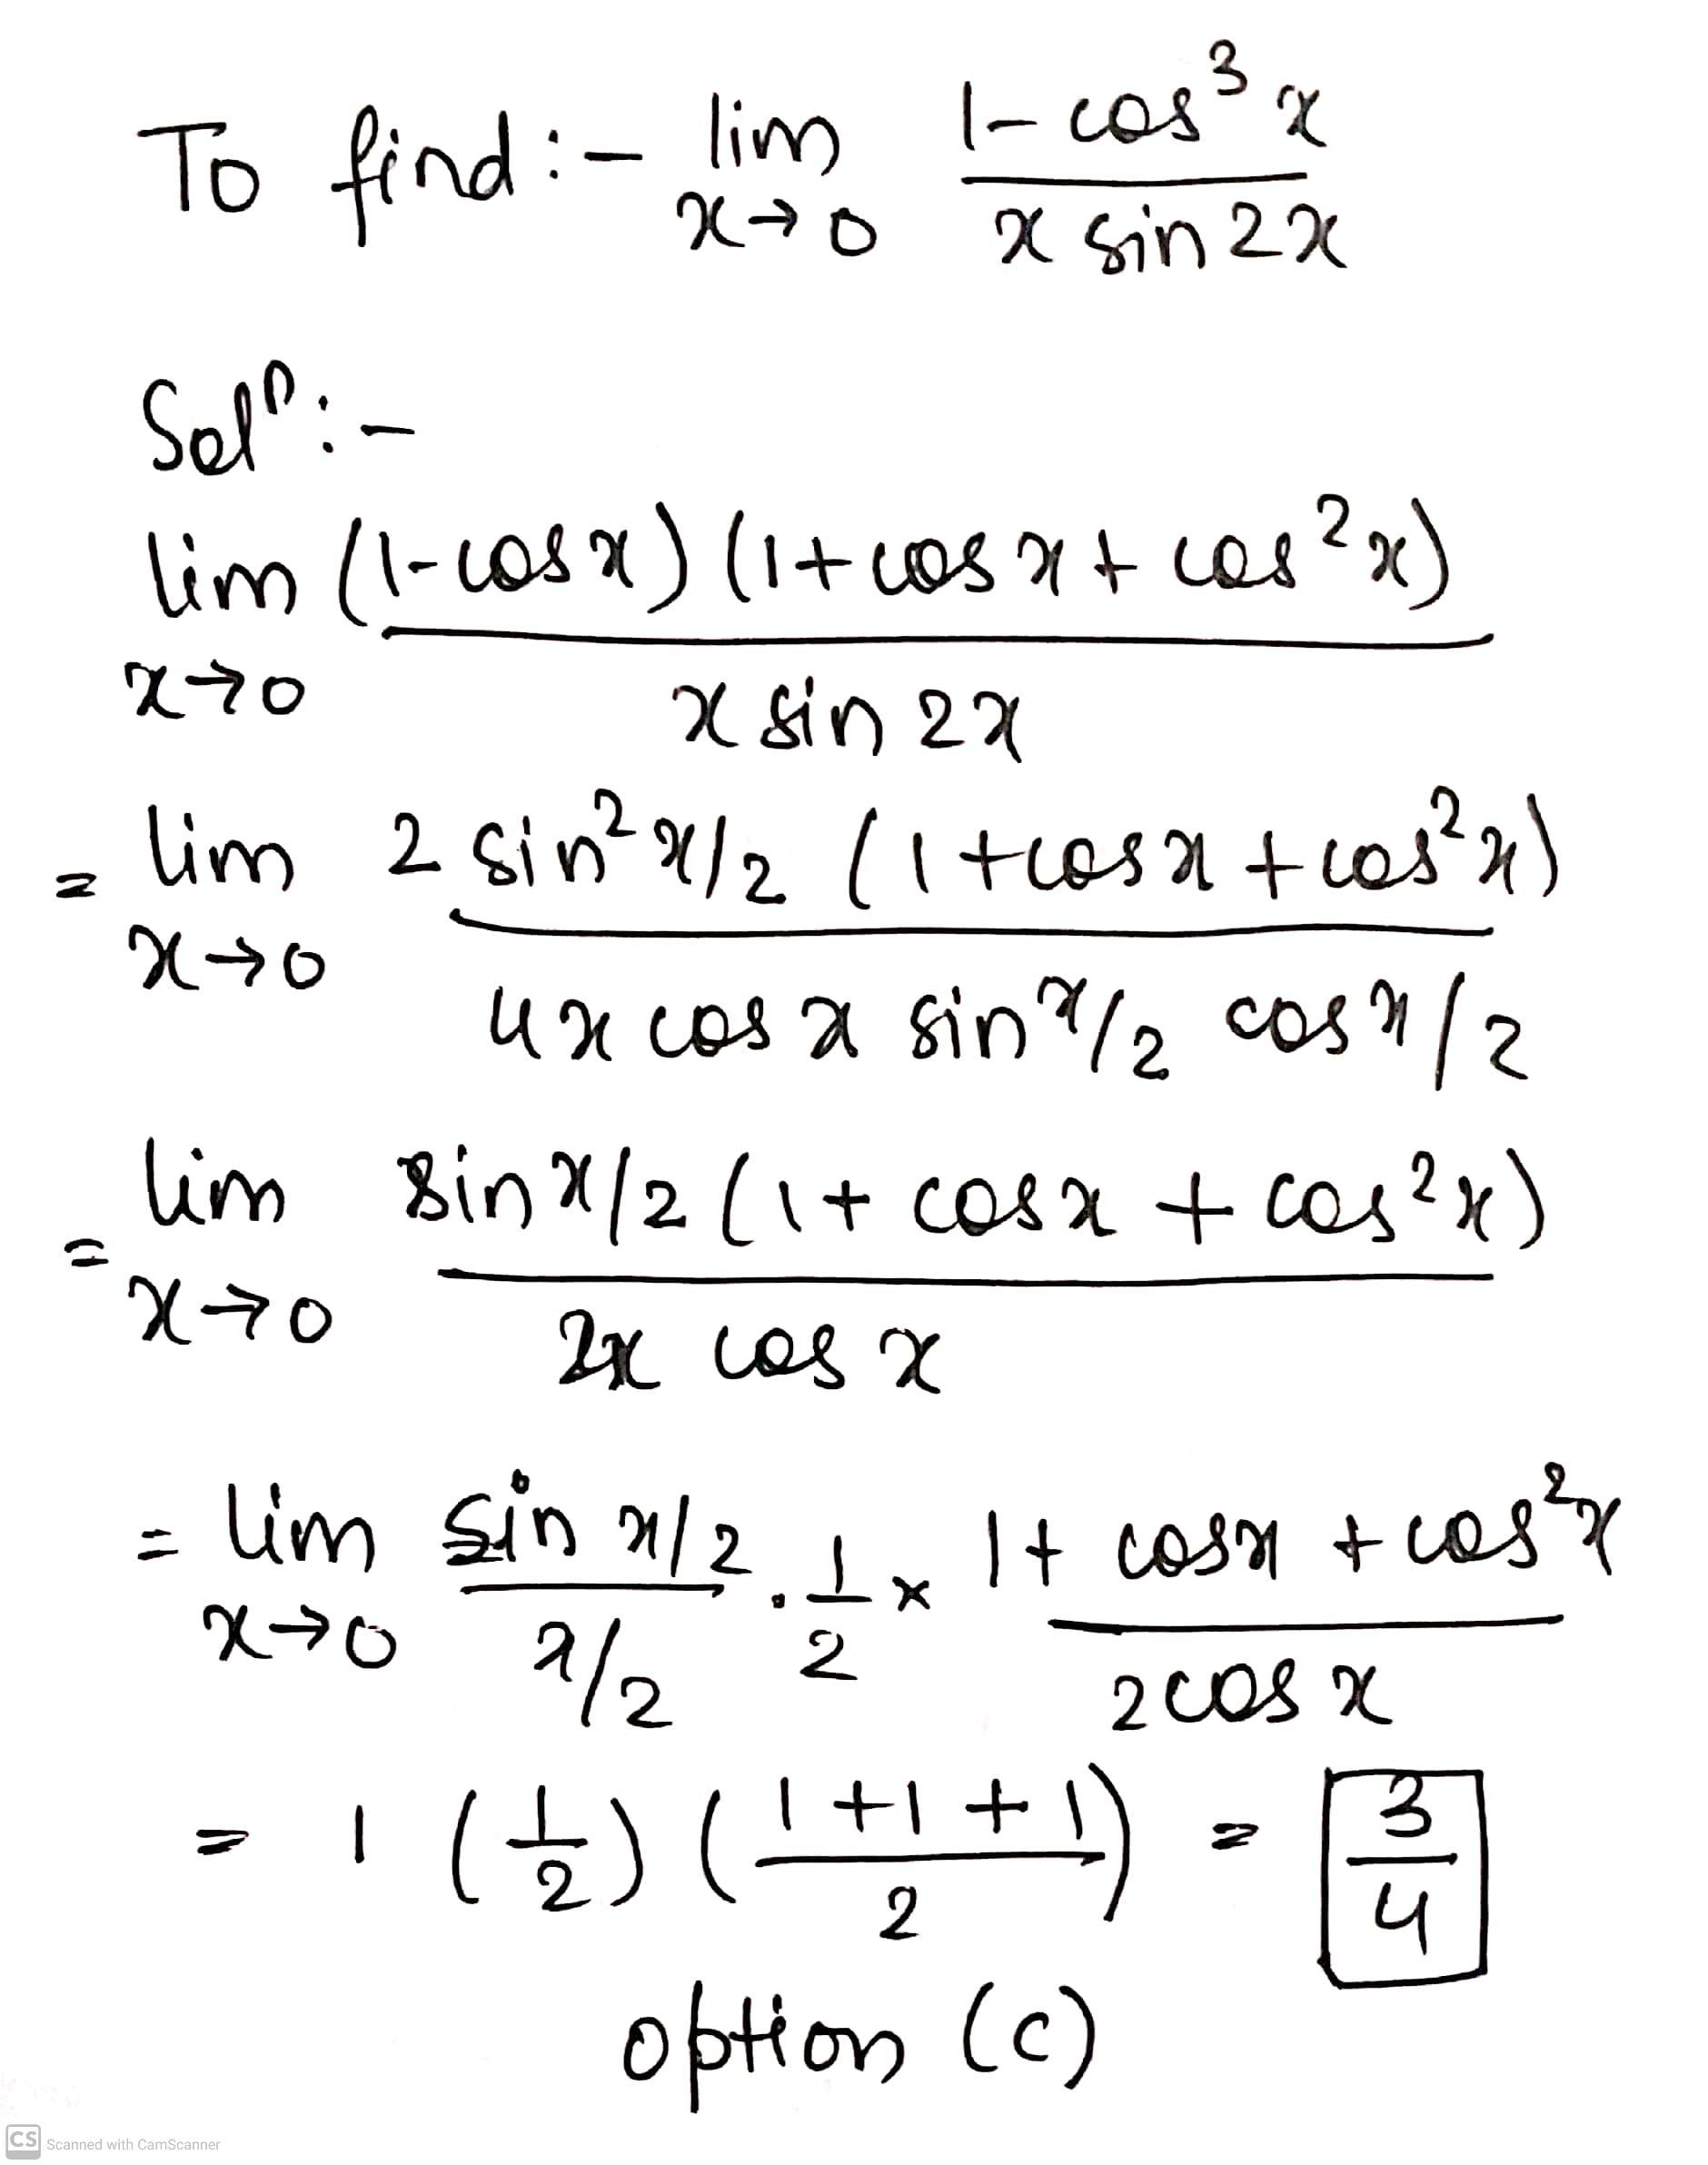 To find :- lim x→0 (1 - cos³x) / (x sin 2x)
Solⁿ :-
lim x→0 (1 - cos x) (1 + cos x + cos²x) / (x sin 2x)
= lim x→0 2 sin² x/2 (1 + cos x + cos²x) / (4x cos x sin x/2 cos x/2)
= lim x→0 sin x/2 (1 + cos x + cos²x) / (2x cos x)
= lim x→0 (sin x/2) / (x/2) · 1/2 × (1 + cos x + cos²x) / (2 cos x)
= 1 (1/2) ((1 + 1 + 1) / 2) = 3/4
option (c)
CS Scanned with CamScanner